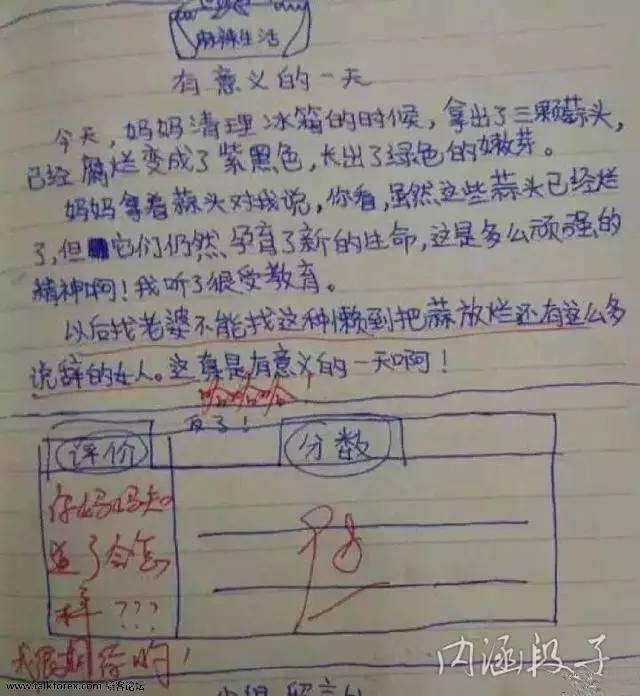 麻辣生活
有意义的一天
今天，妈妈清理冰箱的时候，拿出了三颗蒜头，
已经腐烂变成了紫黑色，长出了绿色的嫩芽。
妈妈拿着蒜头对我说，你看，虽然这些蒜头已经烂
了，但它们仍然孕育了新的生命，这是多么顽强的
精神啊！我听了很受教育。
以后找老婆不能找这种懒到把蒜放烂还有这么多
说辞的女人。这真是有意义的一天啊！
哈哈哈哈
反了！
评价
分数
你妈妈知
道了会怎
样？？？
优
内涵段子
www.talkforex.com 韬客论坛